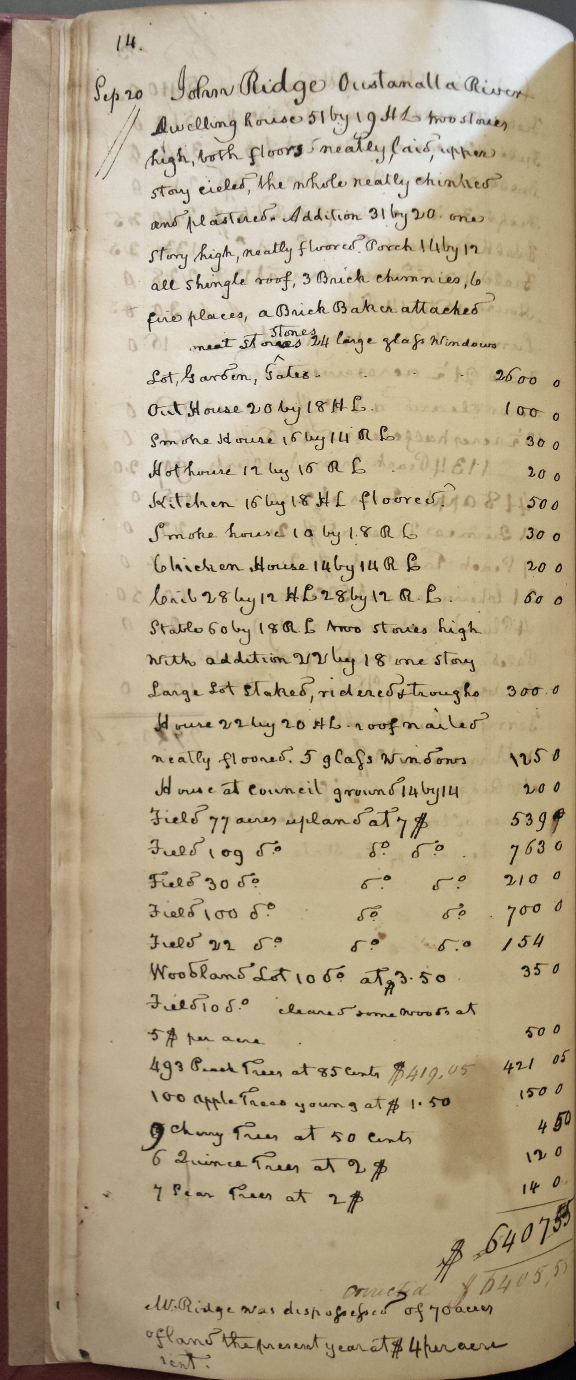 14.
Sep 20 John Ridge Oustanalla River
Dwelling house 51 by 19 H L two stories
high, both floors neatly laid, upper
story cieled, the whole neatly chinked
and plastered. Addition 31 by 20. one
story high, neatly floored. Porch 14 by 12
all shingle roof, 3 Brick chimnies, 6
fire places, a Brick Baker attached
stones
neat 24 large glass Windows
Lot, Garden, Gates. 2600 0
Out House 20 by 18 H L. 100 0
Smoke House 16 by 14 R L 30 0
Hothouse 12 by 16 R L 20 0
Kitchen 16 by 18 H L floored. 50 0
Smoke house 10 by 18 R L 30 0
Chicken House 14 by 14 R L 20 0
Crib 28 by 12 H L 28 by 12 R L. 60 0
Stable 60 by 18 R L two stories high
With addition 22 by 18 one story
Large Lot staked, ridered & troughs 300.0
House 22 by 20 H L. roof nailed
neatly floored. 5 glass Windows 125 0
House at council ground 14 by 14 20 0
Field 77 acres upland at 7 $ 539
Field 109 do do do. 763 0
Field 30 do do do 210 0
Field 100 do do do 700 0
Field 22 do do do 154
Woodland Lot 10 do at $3.50 35 0
Field 10 do cleared some woods at
5 $ per acre 50 0
493 Peach Trees at 85 cents $419.05 421 05
100 apple Trees young at $ 1.50 150 0
9 Cherry Trees at 50 cents 4 50
6 Quince Trees at 2 $ 12 0
7 Pear Trees at 2 $ 14 0
$ 6407 55
corrected $ 6405,55
Mr. Ridge was dispossessed of 70 acres
of land the present year at $ 4 per acre
rent.